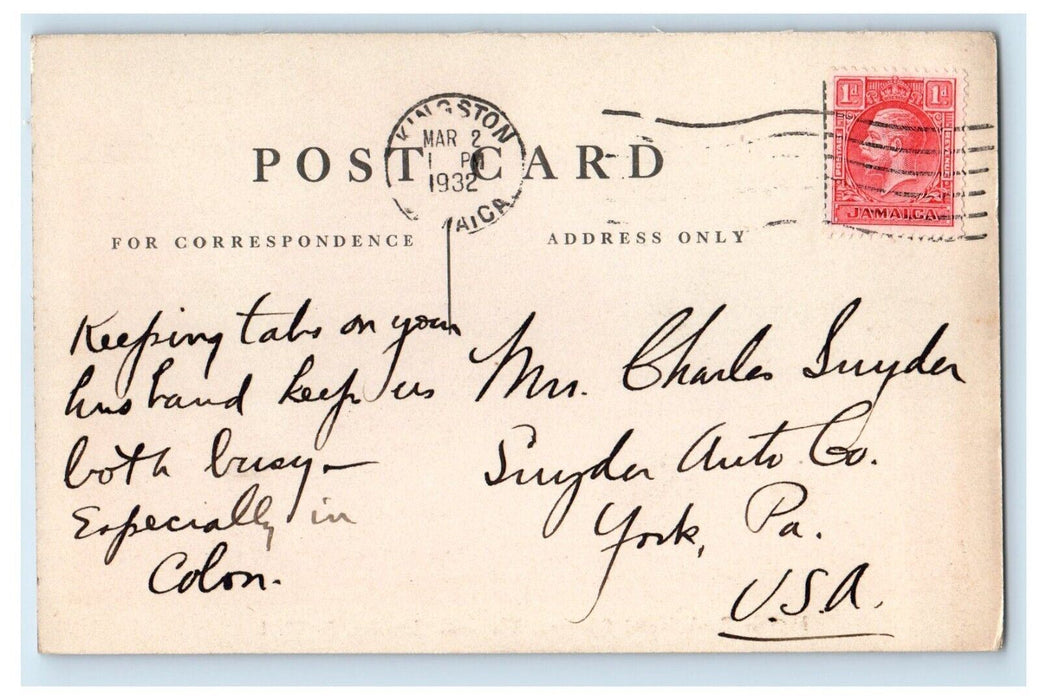 KINGSTON
MAR 2
1 PM
1932
AICA
1d 1d
POSTAGE REVENUE
JAMAICA
POST CARD
FOR CORRESPONDENCE
ADDRESS ONLY
Keeping tabs on your
husband keeps us
both busy—
Especially in
Colon.
Mrs. Charles Snyder
Snyder Auto Co.
York, Pa.
U.S.A.